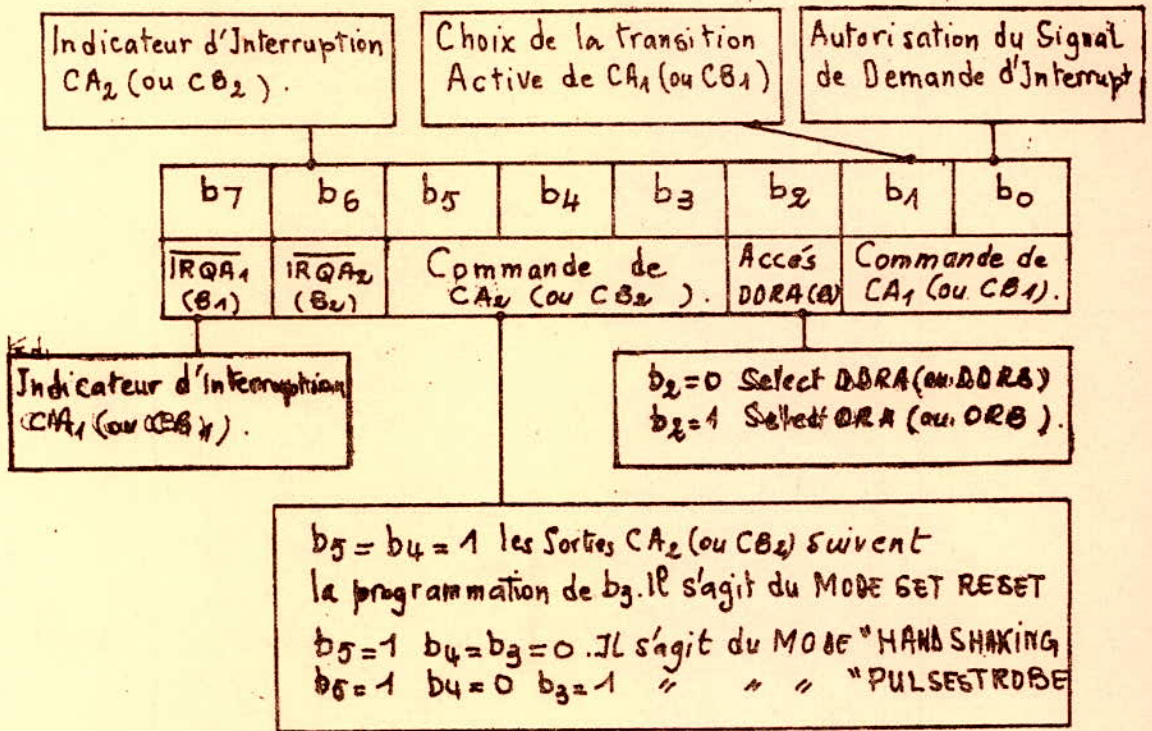 Indicateur d'Interruption
CA2 (ou CB2).
Choix de la transition
Active de CA1 (ou CB1)
Autorisation du Signal
de Demande d'Interrupt
b7 b6 b5 b4 b3 b2 b1 b0
IRQA1
(B1)
IRQA2
(B2)
Commande de
CA2 (ou CB2).
Accés
DDRA(B)
Commande de
CA1 (ou CB1).
Indicateur d'Interruption
CA1 (ou CB1).
b2=0 Select DDRA (ou DDRB)
b2=1 Select ORA (ou ORB).
b5=b4=1 les Sorties CA2 (ou CB2) suivent
la programmation de b3. Il s'agit du MODE SET RESET
b5=1 b4=b3=0. Il s'agit du MODE "HANDSHAKING
b5=1 b4=0 b3=1 " " " "PULSESTROBE